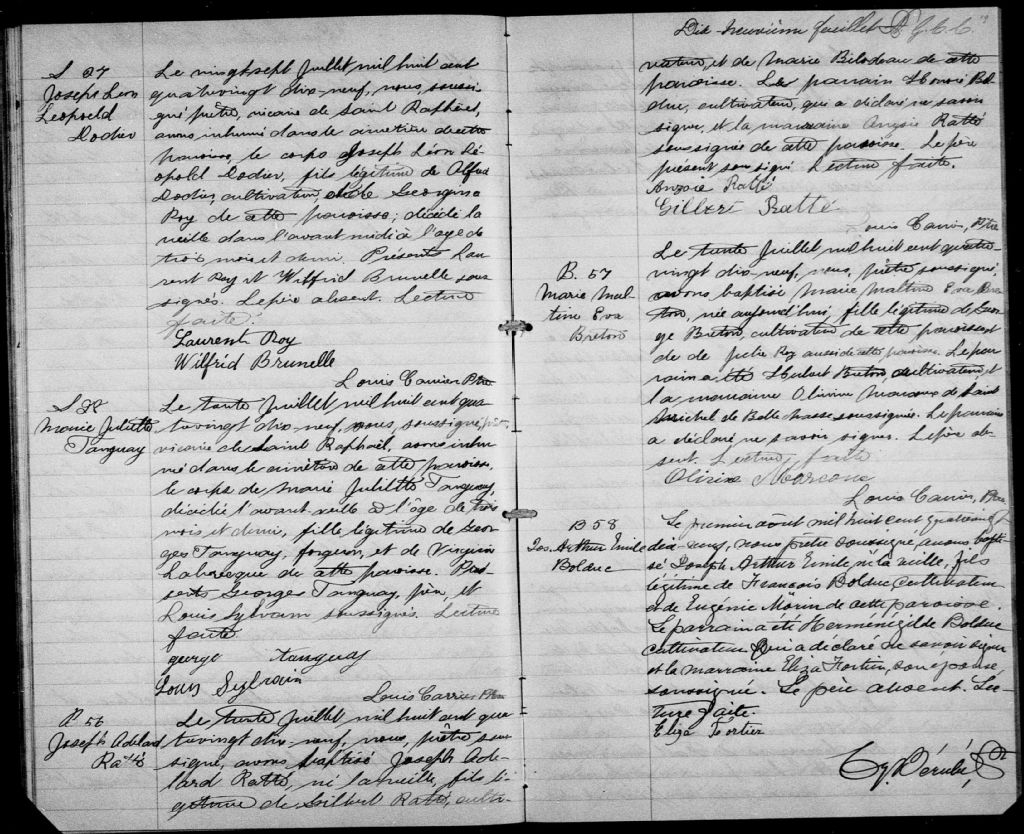 S 27
Joseph Léon
Leopold
Dodier
Le vingt sept Juillet, mil huit cent
quatrevingt dix-neuf, nous, soussi-
gné prêtre, vicaire de Saint Raphaël,
avons inhumé dans le cimetière de cette
paroisse, le corps Joseph Léon Lé-
opold Dodier, fils légitime de Alfred
Dodier, cultivateur, et de Georgina
Roy de cette paroisse; décédé la
veille dans l'avant midi à l'age de
trois mois et demi. Présents Lau-
rent Roy et Wilfrid Brunelle sous-
signés. Le père absent. Lecture
faite.
Laurent Roy
Wilfrid Brunelle
Louis Carrier Ptre
S
Marie Juliette
Tanguay
Le trente Juillet mil huit cent qua-
trevingt dix-neuf, nous, soussigné, prêtre,
vicaire de Saint Raphaël, avons inhu-
mé dans le cimetière de cette paroisse,
le corps de Marie Juliette Tanguay,
décédée l'avant-veille à l'âge de trois
mois et demi, fille légitime de Geor-
ges Tanguay, forgeron, et de Virginie
Labrecque de cette paroisse. Pré-
sents Georges Tanguay, père, et
Louis Sylvain soussignés. Lecture
faite
george tanguay
Louis Sylvain
Louis Carrier Ptre
B 56
Joseph Adelard
Ratté
Le trente Juillet mil huit cent qua-
trevingt dix-neuf, nous, prêtre sous-
signé, avons baptisé Joseph Ade-
lard Ratté, né la veille, fils lé-
gitime de Gilbert Ratté, culti-
Dix-neuvième feuillet
vateur, et de Marie Bilodeau de cette
paroisse. Le parrain Honoré Bol-
duc, cultivateur, qui a déclaré ne savoir
signer, et la marraine Ratté
soussignée de cette paroisse. Le père
présent soussigné Lecture faite.
Ratté
Gilbert Ratté
Louis Carrier, Ptre
B. 57
Marie Mal-
tine Eva
Breton
Le trente Juillet mil huit cent quatre-
vingt dix-neuf, nous, prêtre soussigné,
avons baptisé Marie Maltine Eva Bre-
ton, née aujourd'hui, fille légitime de Geor-
ge Breton, cultivateur de cette paroisse et
de Roy aussi de cette paroisse. Le par-
rain a été Hubert Breton, cultivateur, et
la marraine Olivine Marcoux de Saint
Michel de Belle chasse soussignée. Le parrain
a déclaré ne savoir signer. Le père ab-
sent. Lecture faite
Olivine Marcoux
Louis Carrier, Ptre
B 58
Jos. Arthur Emile
Bolduc
Le premier août mil huit cent quatrevingt
dix-neuf, nous prêtre soussigné, avons bapti-
sé Joseph Arthur Emile né la veille, fils
légitime de François Bolduc cultivateur
et de Eugénie Morin de cette paroisse.
Le parrain a été Herménégilde Bolduc
cultivateur qui a déclaré ne savoir signer
et la marraine Eliza Fortier, son épouse
soussignée. Le père absent. Lec-
ture faite.
Eliza Fortier